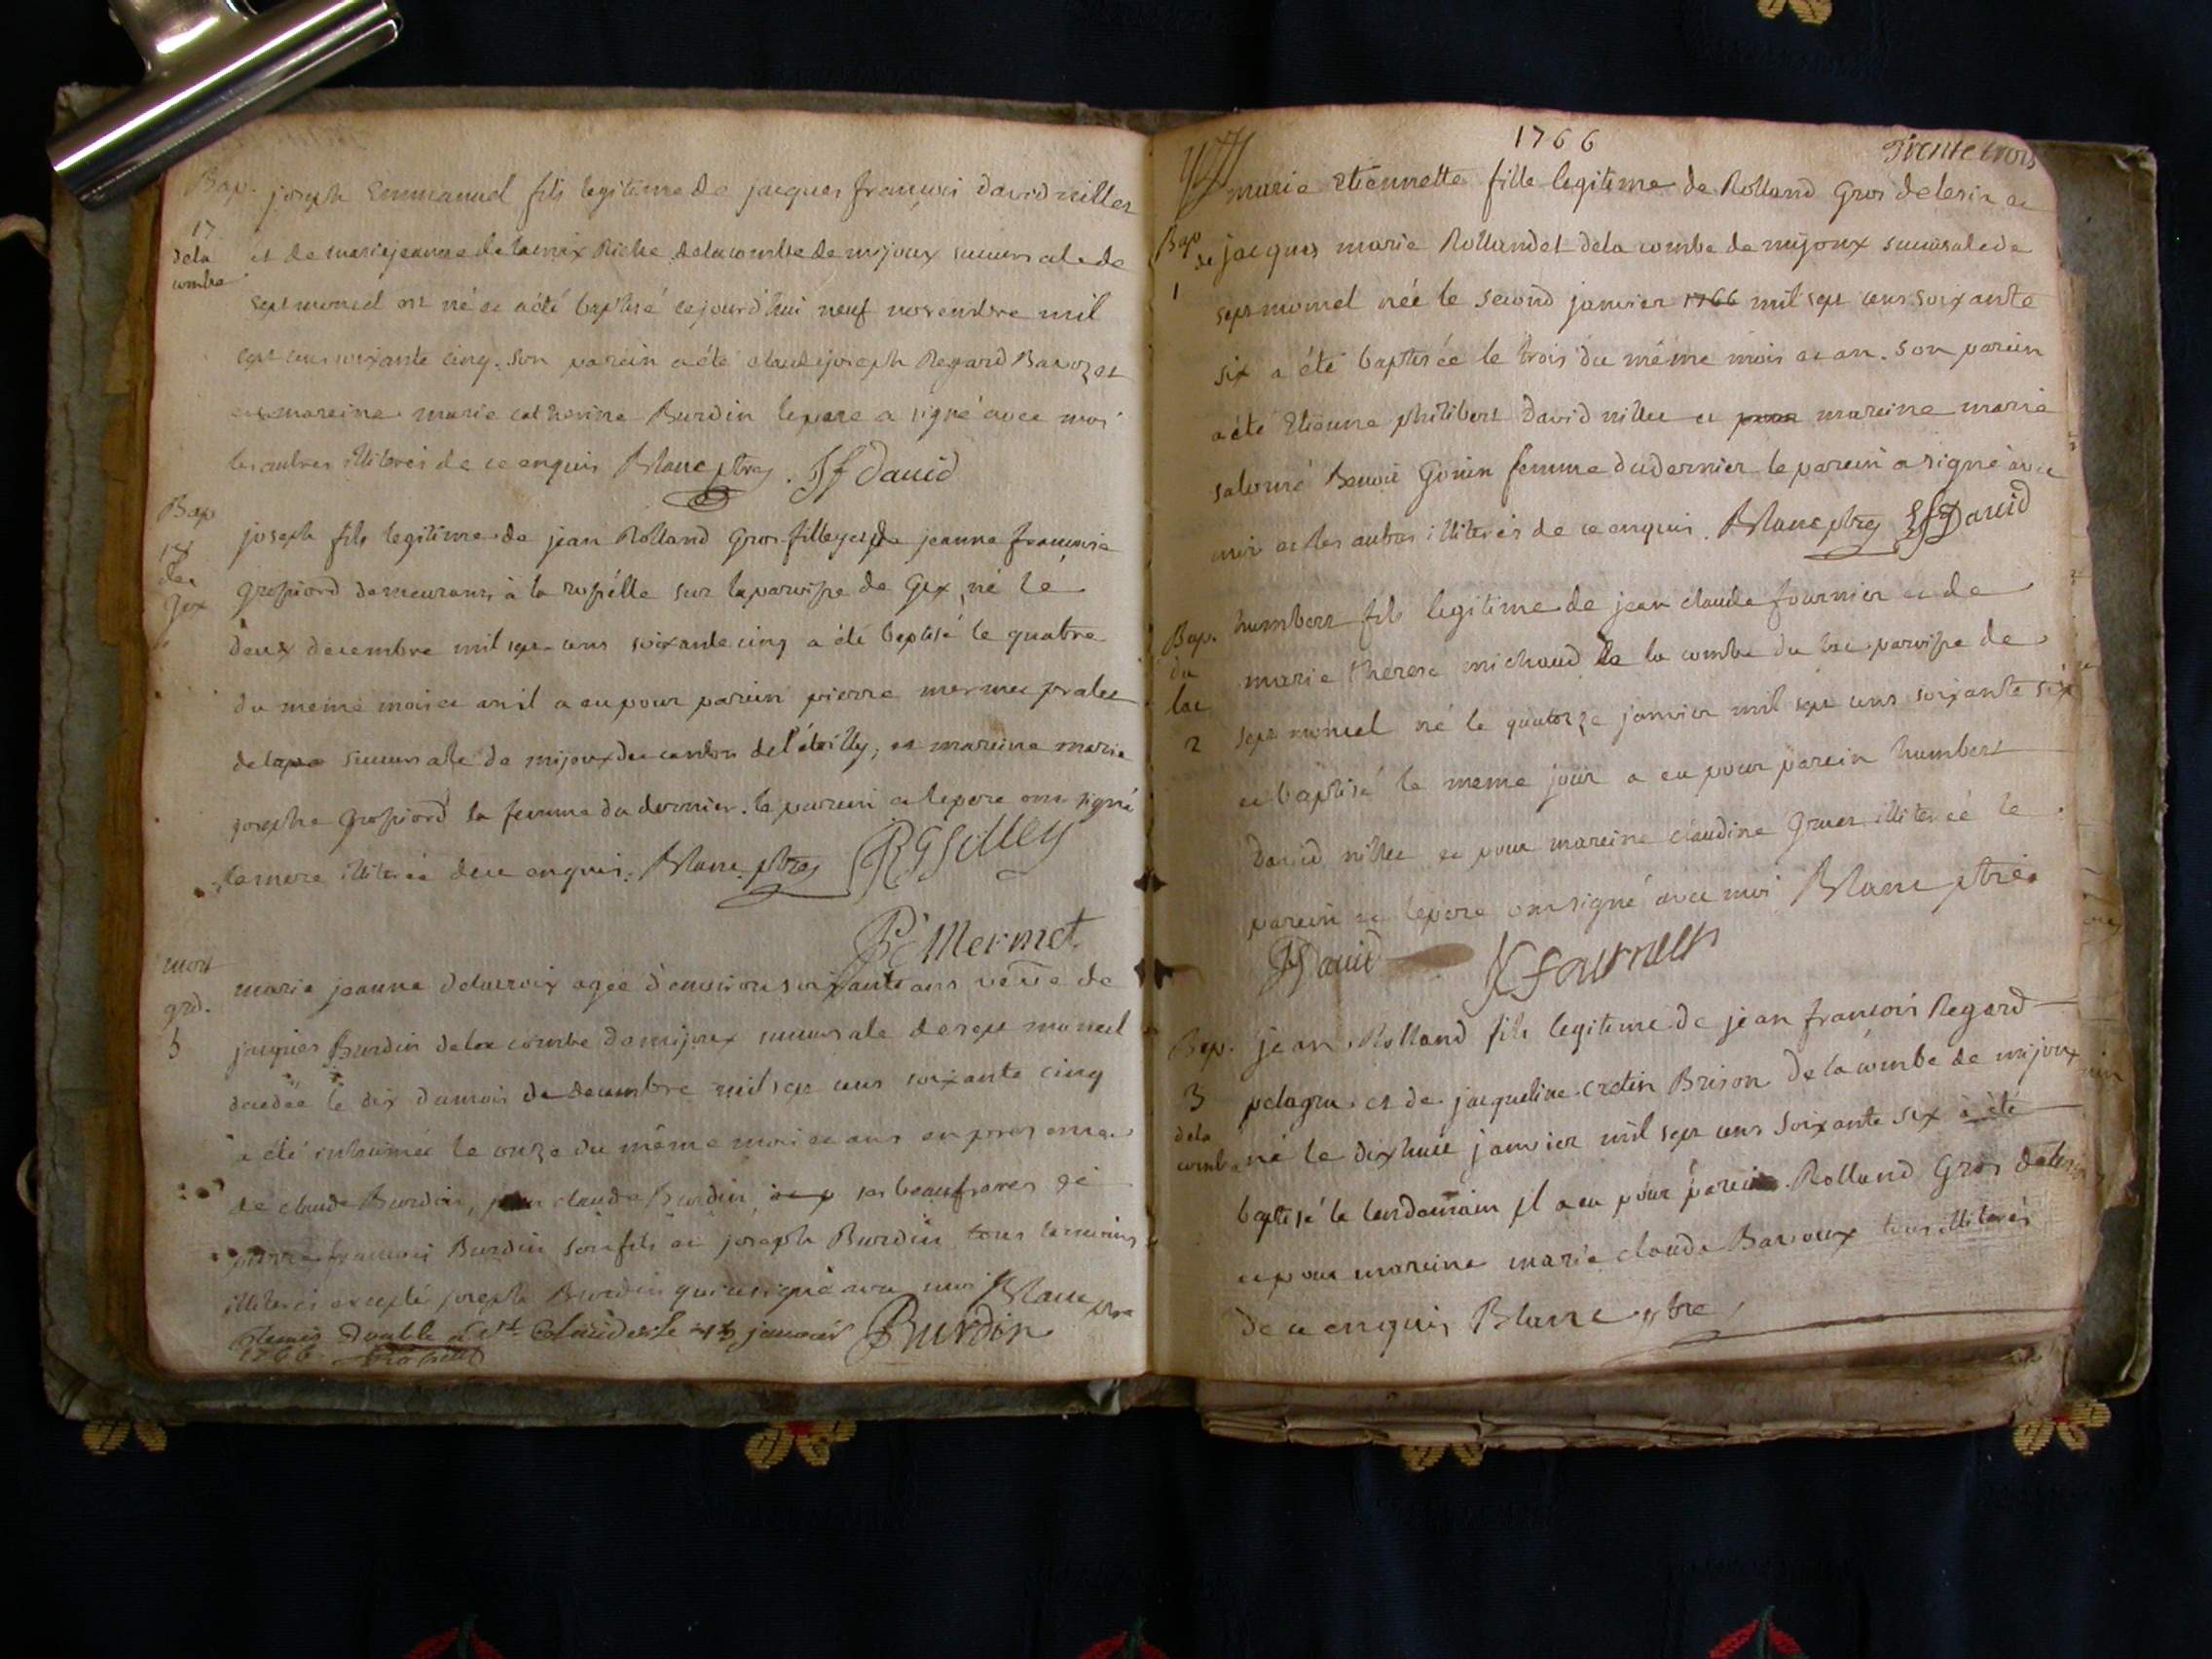 Bap. joseph Emmanuel fils legitime de jacques francois david nillet
17
dela
combe
et de marie jeanne delacroix Riche delacombe de mijoux succursale de
septmoncel est né et a été baptisé cejourd'hui neuf novembre mil
sept cens soixante cinq. son parein a été claude joseph Regard Bavozet
et mareine marie catherine Burdin le pere a signé avec moi
les autres illiterés de ce enquis Blanc ptre J f David
Bap
18
de
Gex
joseph fils legitime de jean Rolland Gros-filley et de jeanne francoise
Grospiord demeurans à la sur la paroisse de Gex, né le
deux decembre mil sept cens soixante cinq a été baptisé le quatre
du même mois et an il a eu pour parein pierre mermet pralet
de la succursale de mijoux du canton de l' et mareine marie
josephe Grospiord la femme du dernier. le parein et le pere ont signé
la mere illiterée de ce enquis. Blanc ptre RGfilley
P Mermet
mort
grd.
5
marie jeanne delacroix agée d'environ soixante ans veuve de
jacques Burdin de la combe de mijoux succursale de sept moncel
decedée le dix du mois de decembre mil sept cens soixante cinq
a été inhumée le onze du même mois et ans en presence
de claude Burdin, jean claude Burdin, ses beaufreres et
pierre francois Burdin son fils et joseph Burdin tous temoins
illiterés excepté joseph Burdin qui a signé avec moi Blanc ptre
Remis Double a St Claude le janvier Burdin
1766
1766
Trente trois
marie Etiennette fille legitime de Rolland Gros delesin et
Bap
1
de jacques marie Rollandet dela combe de mijoux succursale de
septmoncel née le second janvier 1766 mil sept cens soixante
six a été baptisée le trois du même mois et an. son parein
a été Etienne philibert David nillet et mareine marie
salomé Benoit Gonin femme du dernier le parein a signé avec
moi et les autres illiterés de ce enquis. Blanc ptre David
Bap.
du
lac
2
humbert fils legitime de jean claude fournier et de
marie therese michaud de la combe du lac paroisse de
sept moncel né le quatorze janvier mil sept cens soixante six
et baptisé le meme jour a eu pour parein humbert
David nillet et pour mareine claudine Gruet illiterée le
parein et le pere ont signé avec moi Blanc ptre
David fournier
Bap.
3
dela
combe
jean Rolland fils legitime de jean francois Regard
pelagru et de jacqueline cretin Brison de la combe de mijoux
né le dixhuit janvier mil sept cens soixante six a été
baptisé le lendemain il a eu pour parein Rolland Gros delesin
et pour mareine marie claude Bavoux tous illiterés
de ce enquis Blanc ptre